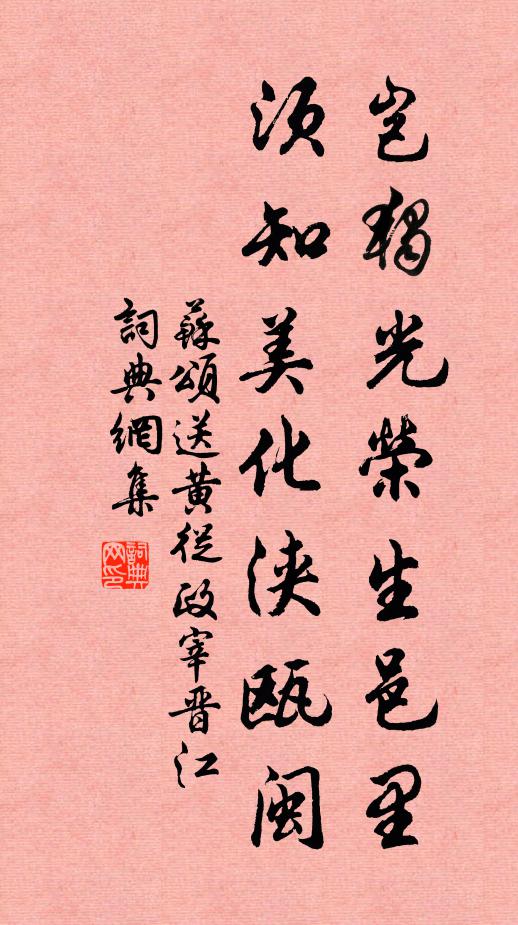 岂獨光榮生邑里
须知美化浹甌閩
蘇頌送黄從政宰晋江
詞典網集
詞典网印